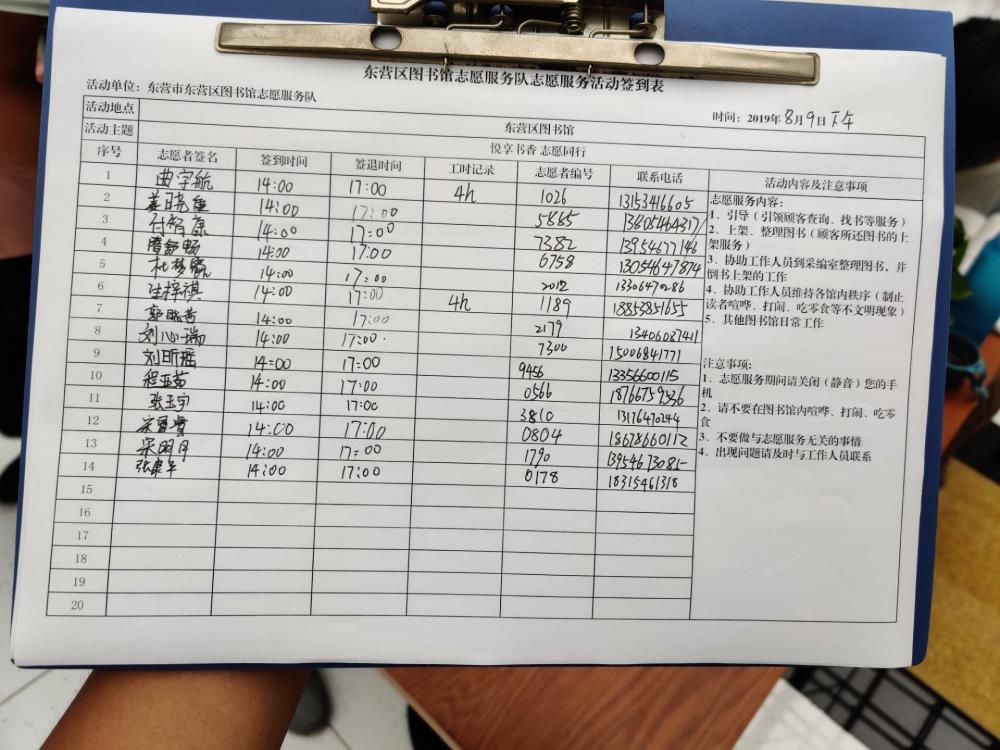 东营区图书馆志愿服务队志愿服务活动签到表
活动单位：东营市东营区图书馆志愿服务队
时间：2019年8月9日下午
活动地点 东营区图书馆
活动主题 悦享书香 志愿同行
序号 志愿者签名 签到时间 签退时间 工时记录 志愿者编号 联系电话 活动内容及注意事项
1 曲宇航 14:00 17:00 4h 1026 13153416605
2 姜晓 14:00 17:00 5865
3 付智康 14:00 17:00 7382 13954677146
4 隋舒畅 14:00 17:00 6758 13054647874
5 杜梦 14:00 17:00 2012 13306470286
6 张梓祺 14:00 17:00 4h 1189 18853851655
7 14:00 17:00 2179 13406087411
8 刘心瑞 14:00 17:00 7300 15006841771
9 刘昕瑶 14:00 17:00 9456 13356600115
10 程亚茹 14:00 17:00 0566
11 张玉宇 14:00 17:00 3810 13176470244
12 14:00 17:00 0804 18678660112
13 宋明月 14:00 17:00 1790 13954673085
14 张 14:00 17:00 0178 18315461318
15
16
17
18
19
20
志愿服务内容：
1、引导（引领顾客查询、找书等服务）
2、上架、整理图书（顾客所还图书的上
架服务）
3、协助工作人员到采编室整理图书，并
倒书上架的工作
4、协助工作人员维持各馆内秩序（制止
读者喧哗、打闹、吃零食等不文明现象）
5、其他图书馆日常工作
注意事项：
1、志愿服务期间请关闭（静音）您的手
机
2、请不要在图书馆内喧哗、打闹、吃零
食
3、不要做与志愿服务无关的事情
4、出现问题请及时与工作人员联系